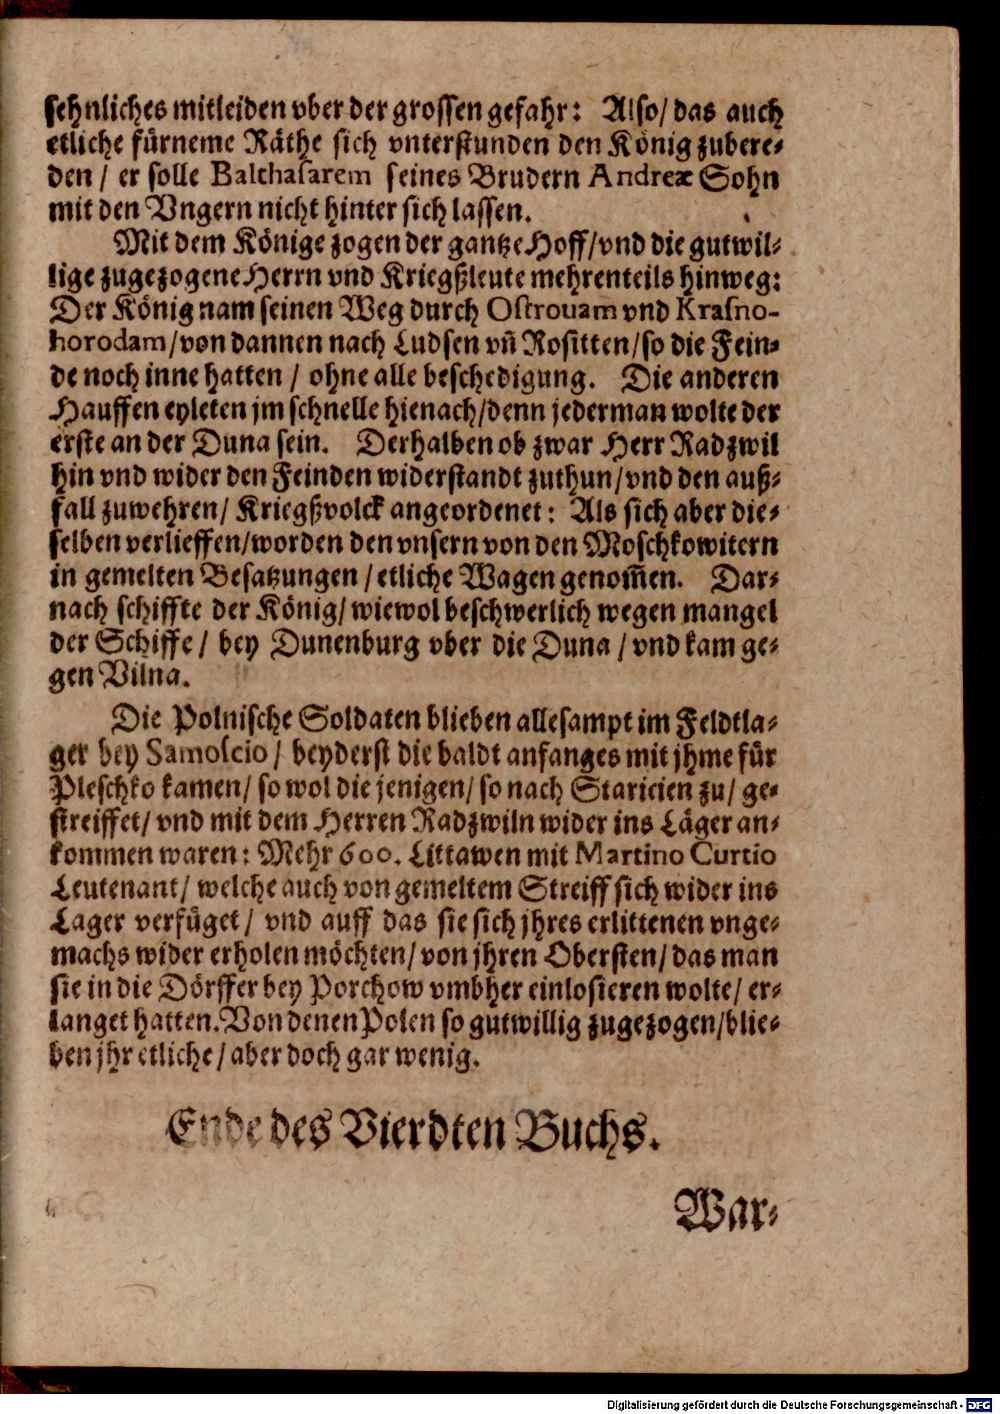 sehnliches mitleiden vber der grossen gefahr: Also/ das auch
etliche fürneme Räthe sich vnterstunden den König zubere-
den / er solle Balthasarem seines Brudern Andreæ Sohn
mit den Vngern nicht hinter sich lassen.
Mit dem Könige zogen der gantze Hoff/vnd die gutwil-
lige zugezogene Herrn vnd Kriegßleute mehrenteils hinweg:
Der König nam seinen Weg durch Ostrouam vnd Krasno-
horodam/von dannen nach Ludsen vñ Rositten/so die Fein-
de noch inne hatten / ohne alle beschedigung. Die anderen
Hauffen eyleten jm schnelle hienach/denn jederman wolte der
erste an der Duna sein. Derhalben ob zwar Herr Radzwil
hin vnd wider den Feinden widerstandt zuthun/vnd den auß-
fall zuwehren/ Kriegßvolck angeordenet: Als sich aber die-
selben verlieffen/worden den vnsern von den Moschkowitern
in gemelten Besatzungen /etliche Wagen genom̃en. Dar-
nach schiffte der König/ wiewol beschwerlich wegen mangel
der Schiffe / bey Dunenburg vber die Duna / vnd kam ge-
gen Vilna.
Die Polnische Soldaten blieben allesampt im Feldtla-
ger bey Samoscio / beyderst die baldt anfanges mit jhme für
Pleschko kamen/ so wol die jenigen/ so nach Staricien zu/ ge-
streiffet/ vnd mit dem Herren Radzwiln wider ins Läger an-
kommen waren: Mehr 600. Littawen mit Martino Curtio
Leutenant/ welche auch von gemeltem Streiff sich wider ins
Lager verfüget/ vnd auff das sie sich jhres erlittenen vnge-
machs wider erholen möchten/ von jhren Obersten/ das man
sie in die Dörffer bey Porchow vmbher einlosieren wolte/ er-
langet hatten. Von denen Polen so gutwillig zugezogen/blie-
ben jhr etliche / aber doch gar wenig.
Ende des Vierdten Buchs.
War-
Digitalisierung gefördert durch die Deutsche Forschungsgemeinschaft - DFG